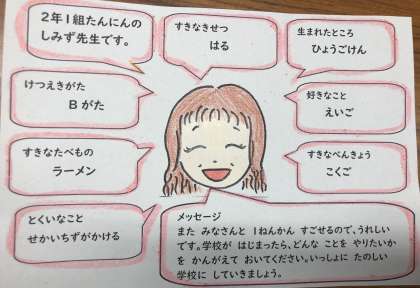 2年1組たんにんの
しみず先生です。
すきなきせつ
はる
生まれたところ
ひょうごけん
けつえきがた
Bがた
好きなこと
えいご
すきなたべもの
ラーメン
すきなべんきょう
こくご
とくいなこと
せかいちずがかける
メッセージ
また みなさんと 1ねんかん すごせるので、うれしい
です。学校が はじまったら、どんな ことを やりたいか
を かんがえて おいてください。いっしょに たのしい
学校に していきましょう。